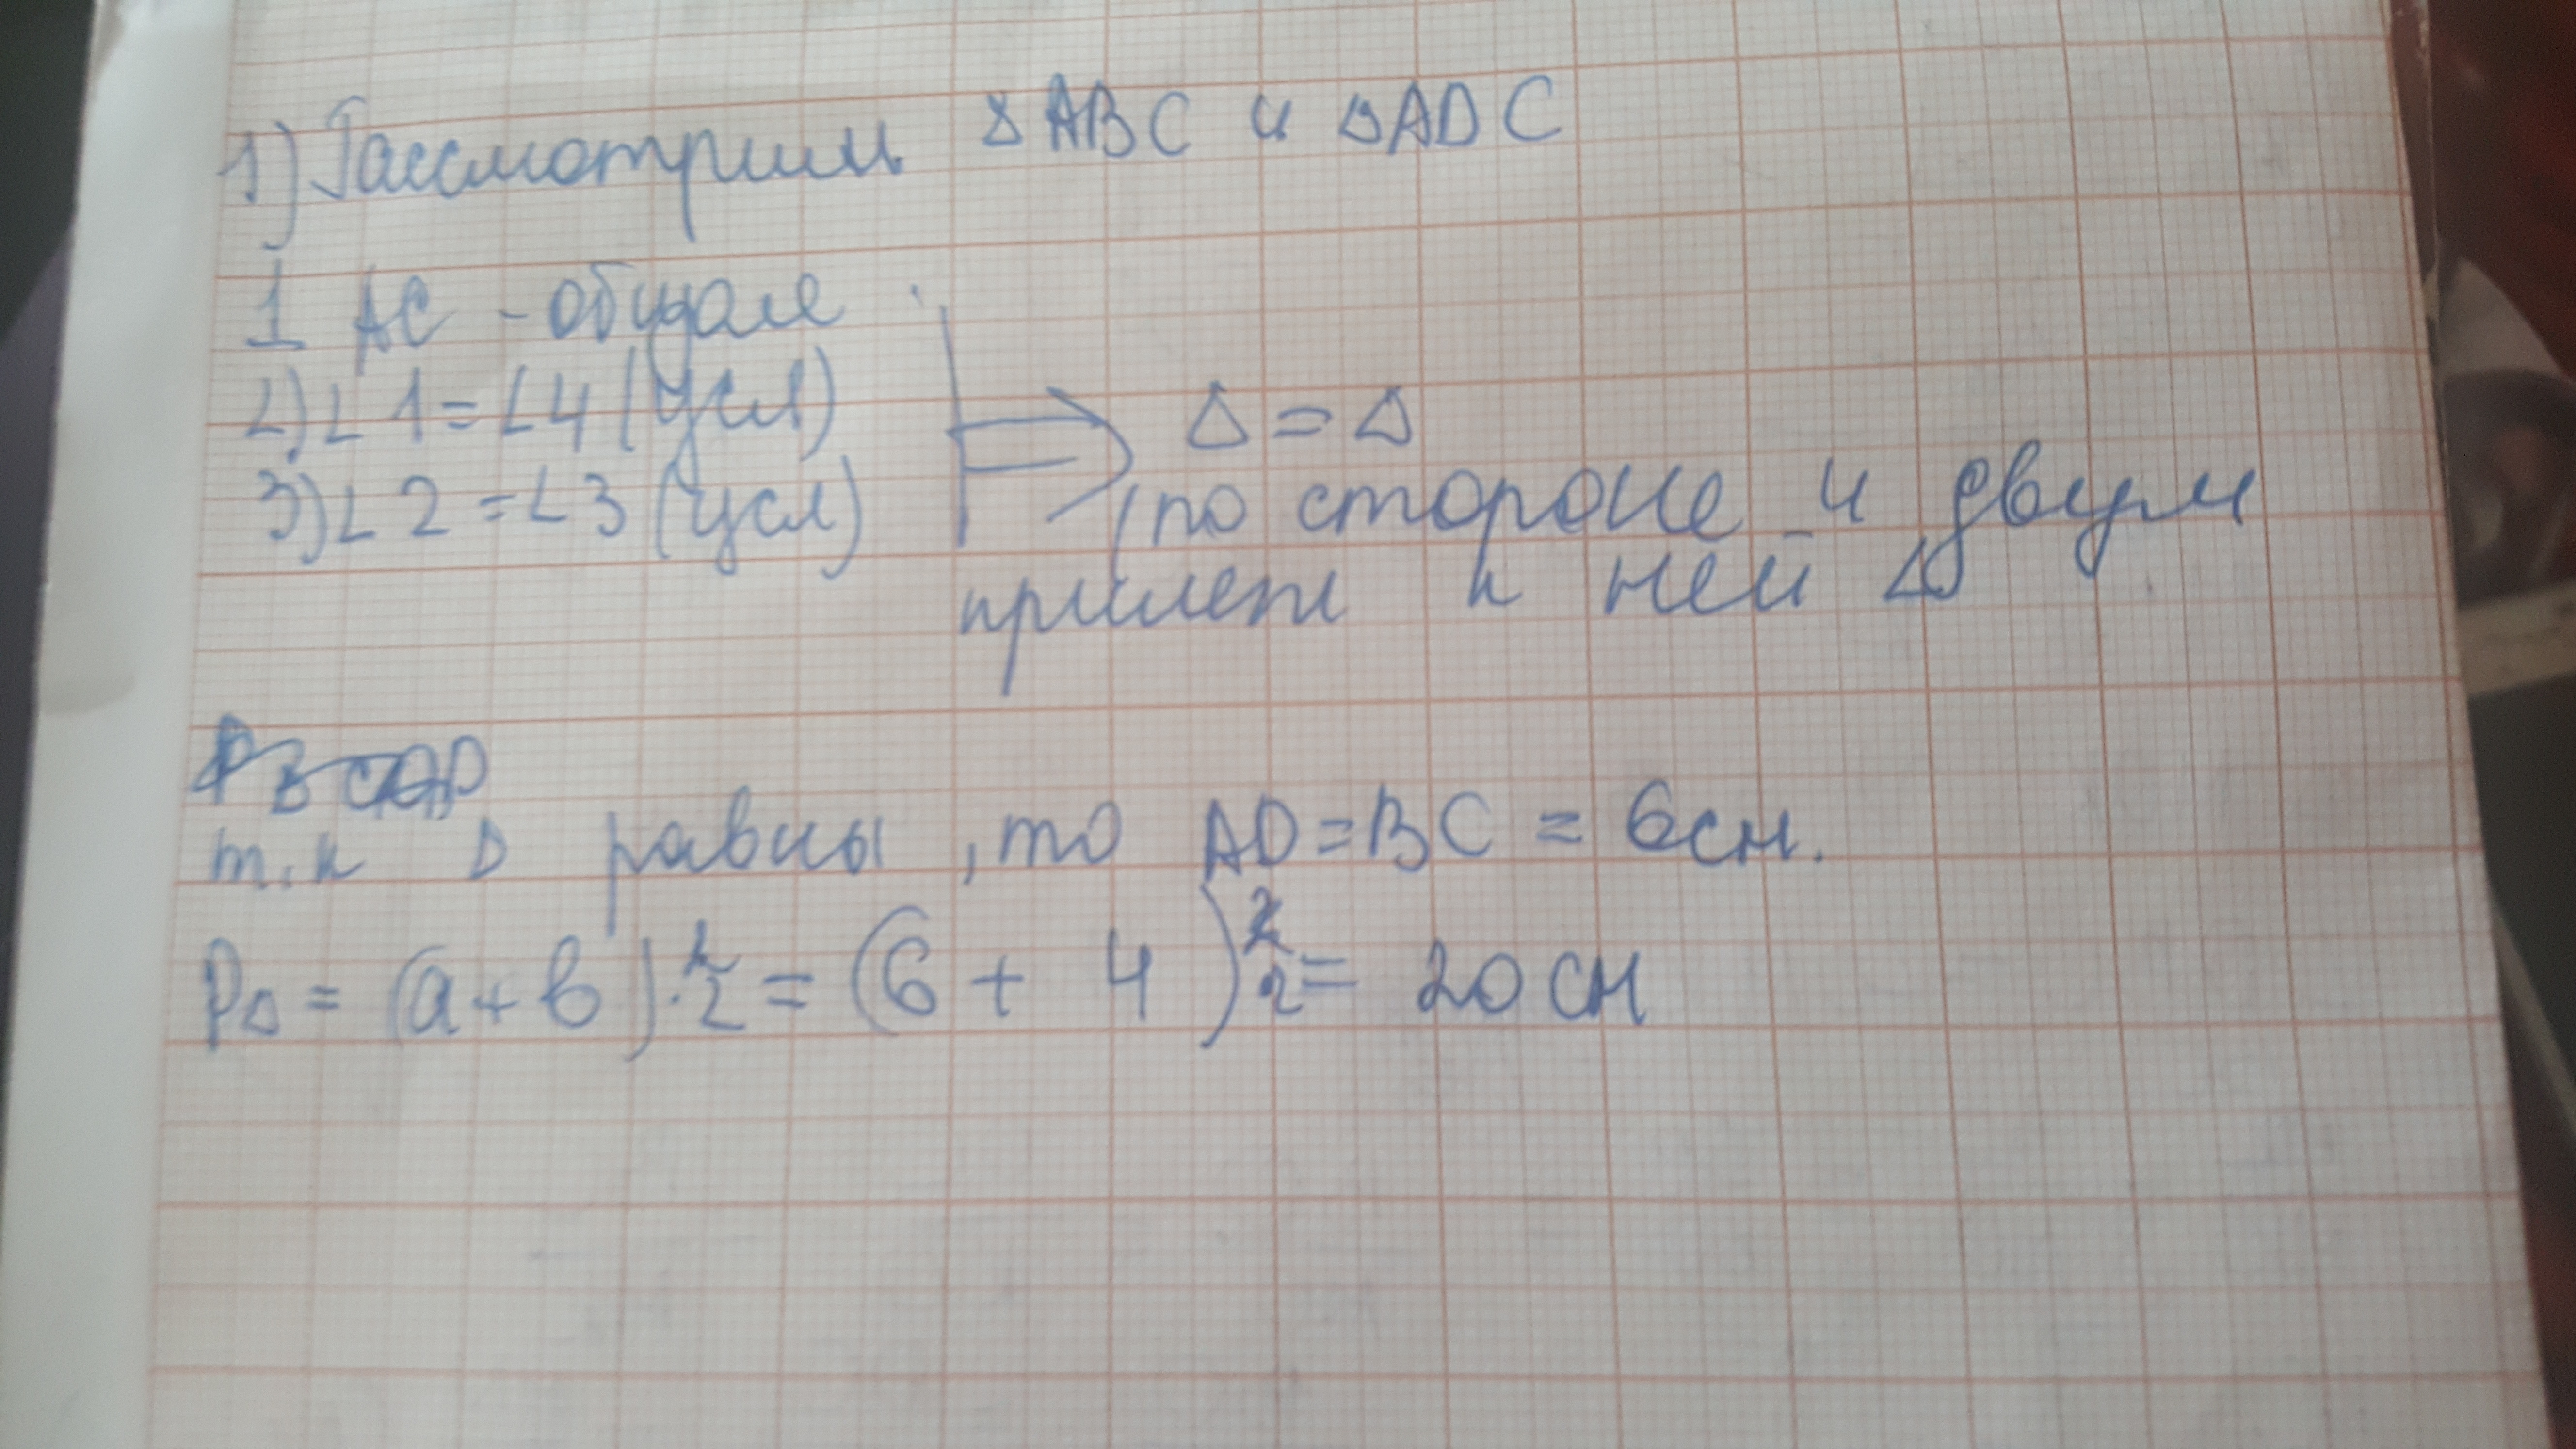 1) Рассмотрим ΔABC и ΔADC
1 AC - общая
2) ∠1 = ∠4 (усл)
3) ∠2 = ∠3 (усл)
⇒ Δ = Δ
(по стороне и двум
прилеж к ней ∠
т.к Δ равны, то AD = BC = 6см.
PΔ = (a + b) · 2 = (6 + 4) 2 = 20 см